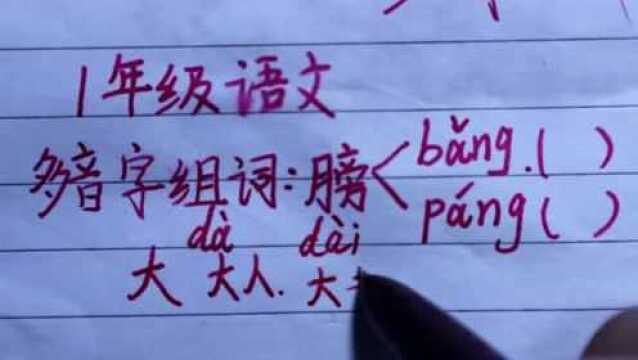 1年级语文
多音字组词:膀 bǎng.( )
páng( )
dà dài
大 大人. 大